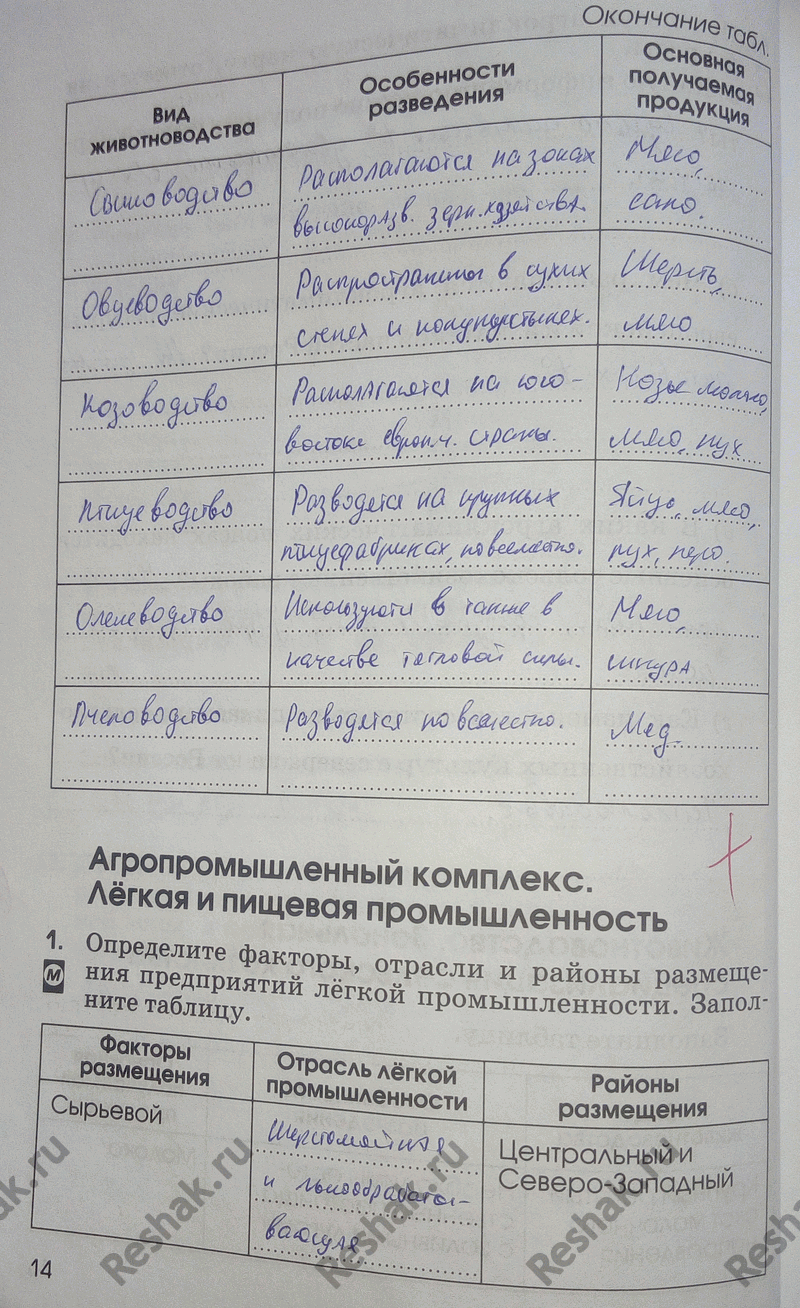 Окончание табл.
Вид животноводства
Особенности разведения
Основная получаемая продукция
Свиноводство
Располагаются на зонах
высокоразв. зерн. хозяйства.
Мясо,
сало.
Овцеводство
Распространены в сухих
степях и полупустынях.
Шерсть,
мясо
Козоводство
Располагаются на юго-
востоке европ. ч. страны.
Козье молоко,
мясо, пух
Птицеводство
Разводятся на крупных
птицефабриках, повсеместно.
Яйцо, мясо,
пух, перо.
Оленеводство
Используются в также в
качестве тягловой силы.
Мясо,
шкура
Пчеловодство
Разводятся повсеместно.
Мед.
Агропромышленный комплекс.
Лёгкая и пищевая промышленность
1. Определите факторы, отрасли и районы размеще-
М ния предприятий лёгкой промышленности. Запол-
ните таблицу.
Факторы размещения
Отрасль лёгкой промышленности
Районы размещения
Сырьевой
Шерстомойная
и льнообрабаты-
вающая
Центральный и
Северо-Западный
14
Reshak.ru
Reshak.ru
Reshak.ru
Reshak.ru